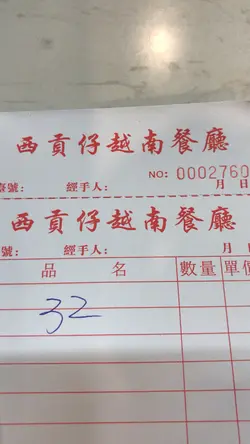 西貢仔越南餐廳
NO: 0002760
號: 經手人: 月 日
西貢仔越南餐廳
號: 經手人: 月 日
品 名 數量 單價
32